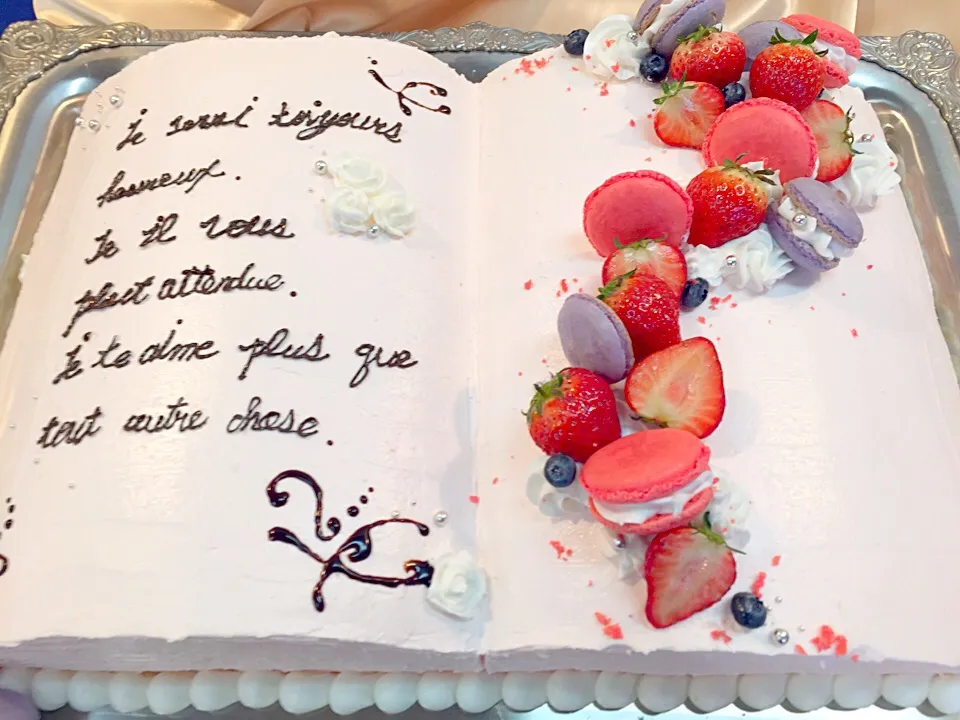 je serai toujours
heureux.
Je il vous
plait attendue.
je te aime plus que
tout autre chose.